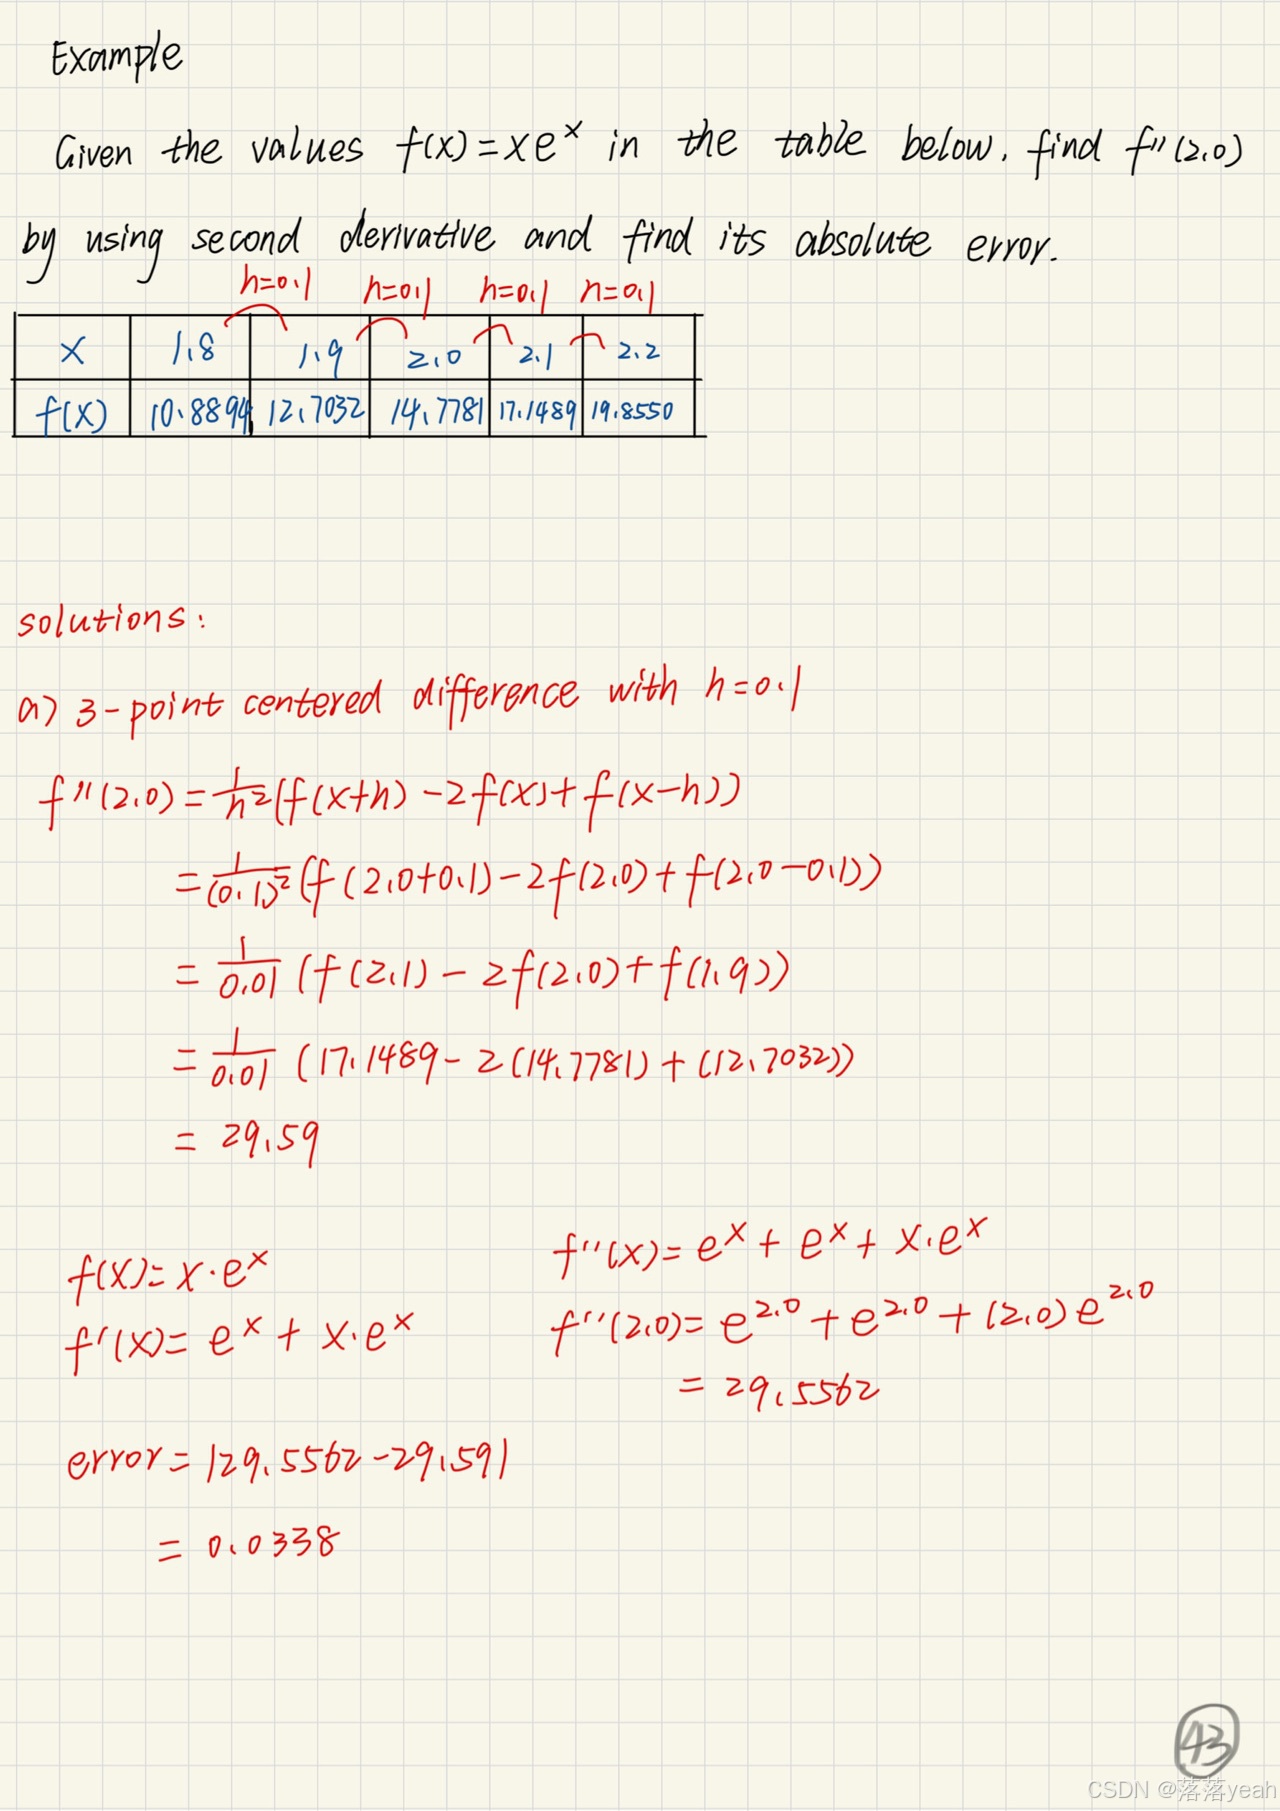 Example
Given the values f(x)=xeˣ in the table below, find f''(2.0)
by using second derivative and find its absolute error.
h=0.1 h=0.1 h=0.1 h=0.1
x 1.8 1.9 2.0 2.1 2.2
f(x) 10.8894 12.7032 14.7781 17.1489 19.8550
solutions:
a) 3-point centered difference with h=0.1
f''(2.0) = 1/h² (f(x+h) - 2f(x) + f(x-h))
= 1/(0.1)² (f(2.0+0.1) - 2f(2.0) + f(2.0-0.1))
= 1/0.01 (f(2.1) - 2f(2.0) + f(1.9))
= 1/0.01 (17.1489 - 2(14.7781) + (12.7032))
= 29.59
f(x) = x·eˣ
f'(x) = eˣ + x·eˣ
f''(x) = eˣ + eˣ + x·eˣ
f''(2.0) = e^2.0 + e^2.0 + (2.0)e^2.0
= 29.5562
error = |29.5562 - 29.59|
= 0.0338
43
CSDN @落落yeah